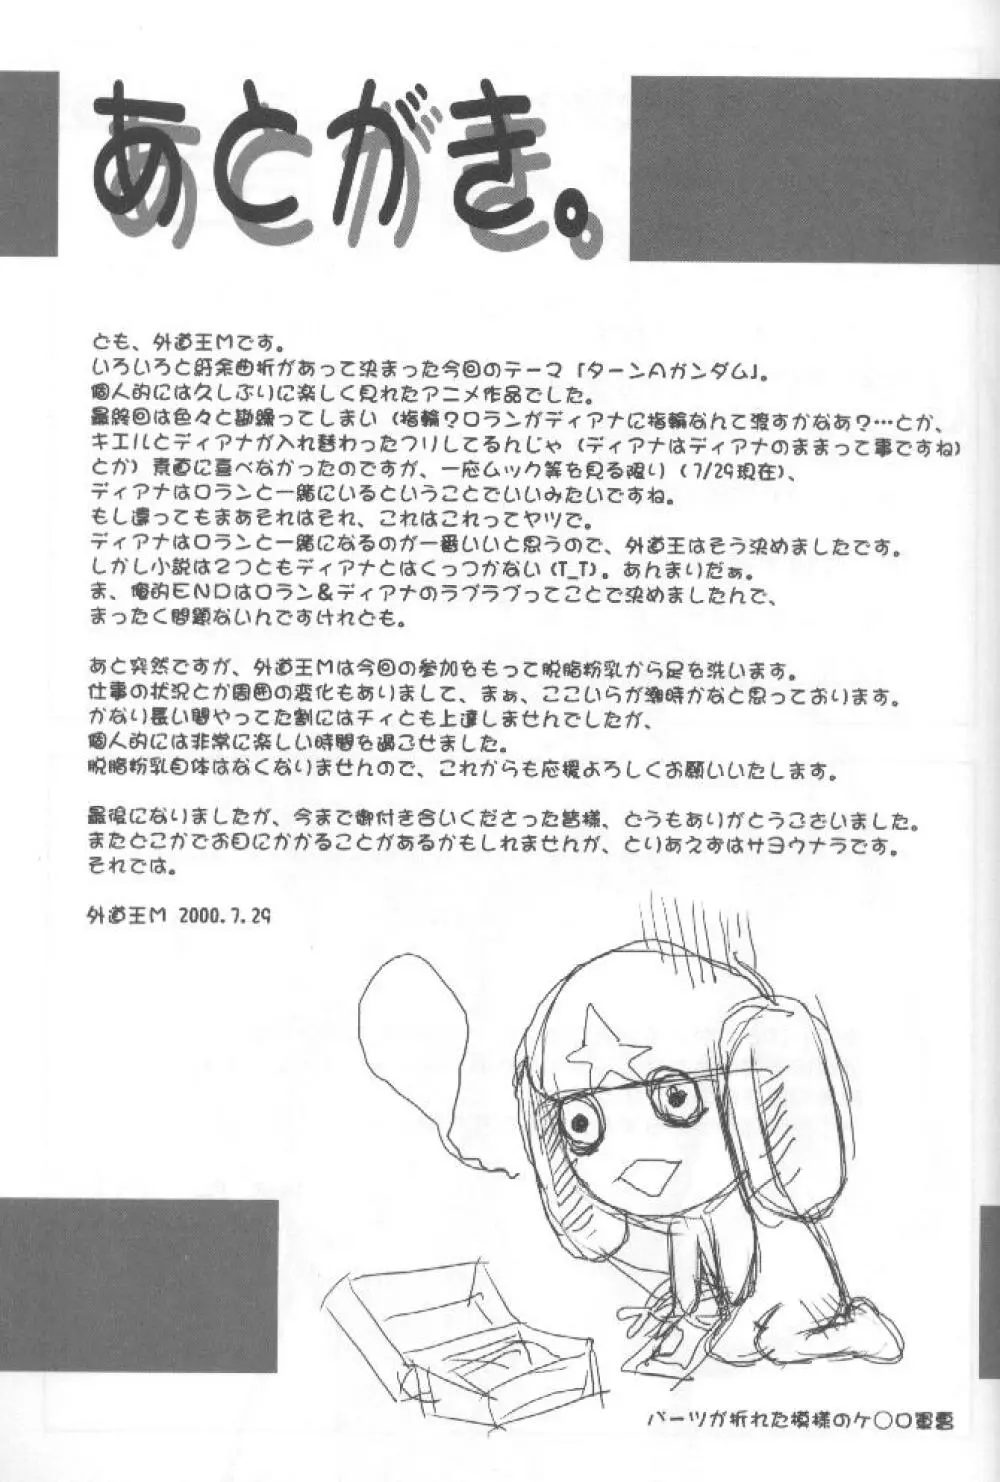 あとがき。
とも、外道王Mです。
いろいろと紆余曲折があって決まった今回のテーマ「ターンAガンダム」。
個人的には久しぶりに楽しく見れたアニメ作品でした。
最終回は色々と勘繰ってしまい(指輪?ロランがディアナに指輪なんて渡すかなあ?…とか、
キエルとディアナが入れ替わったフリしてるんじゃ(ディアナはディアナのままって事ですね)
とか)素直に喜べなかったのですが、一応ムック等を見る限り(7/29現在)、
ディアナはロランと一緒にいるということでいいみたいですね。
もし違ってもまあそれはそれ、これはこれってヤツで。
ディアナはロランと一緒になるのが一番いいと思うので、外道王はそう決めましたです。
しかし小説は2つともディアナとはくっつかない(T_T)。あんまりだぁ。
ま、俺的ENDはロラン&ディアナのラブラブってことで決めましたんで、
まったく問題ないんですけれども。
あと突然ですが、外道王Mは今回の参加をもって脱脂粉乳から足を洗います。
仕事の状況とか周囲の変化もありまして、まぁ、ここいらが潮時かなと思っております。
かなり長い間やってた割にはチィとも上達しませんでしたが、
個人的には非常に楽しい時間を過ごせました。
脱脂粉乳自体はなくなりませんので、これからも応援よろしくお願いいたします。
最後になりましたが、今まで御付き合いくださった皆様、どうもありがとうございました。
またどこかでお目にかかることがあるかもしれませんが、とりあえずはサヨウナラです。
それでは。
外道王M 2000.7.29
パーツが折れた模様のケ○ロ軍曹